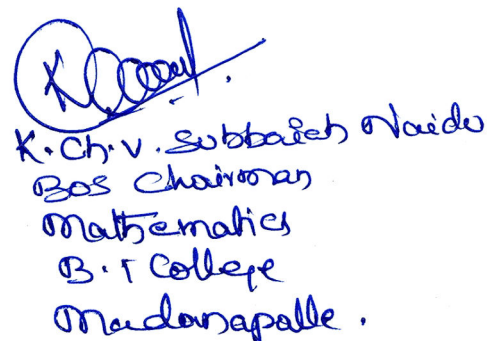 K. Ch. V. Subbaiah Naidu
BOS Chairman
Mathematics
B. T College
Madanapalle.